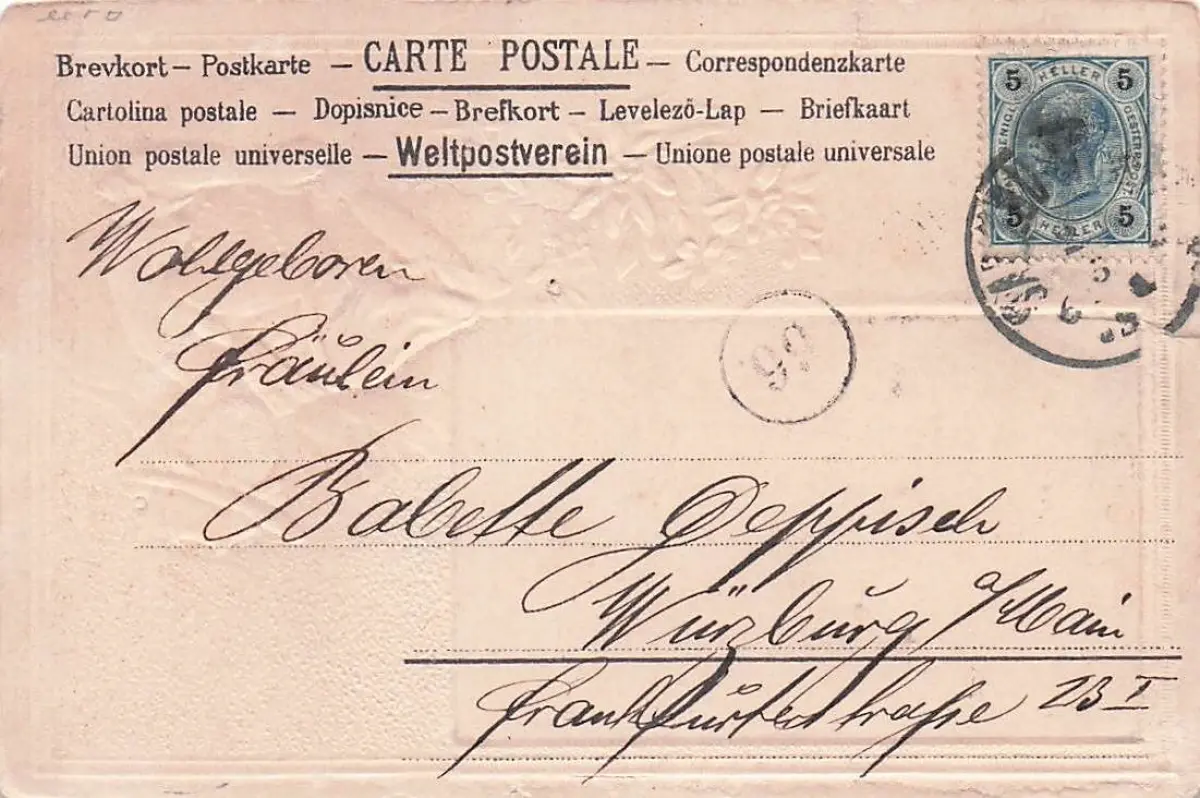 Brevkort – Postkarte – CARTE POSTALE – Correspondenzkarte
Cartolina postale – Dopisnice – Brefkort – Levelező-Lap – Briefkaart
Union postale universelle – Weltpostverein – Unione postale universale
5 HELLER 5
5 HELLER 5
Wohlgeboren
Fräulein
Babette Deppisch
Würzburg a/Main
Frankfurterstraße 23 I